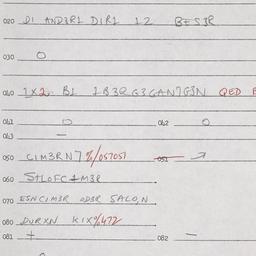 020 DI AND3R1 DIR1 12 BES3R
030 O
040 1X2. B1 1B3RG3GAN7G3N QED
041 O 042 O
043 —
050 CIM3RN7 %/057051 051
060 STLOFC1M3R
070 ESNCIM3R OD3R SALO,N
080 DURXN KIX%472
081 + 082 —